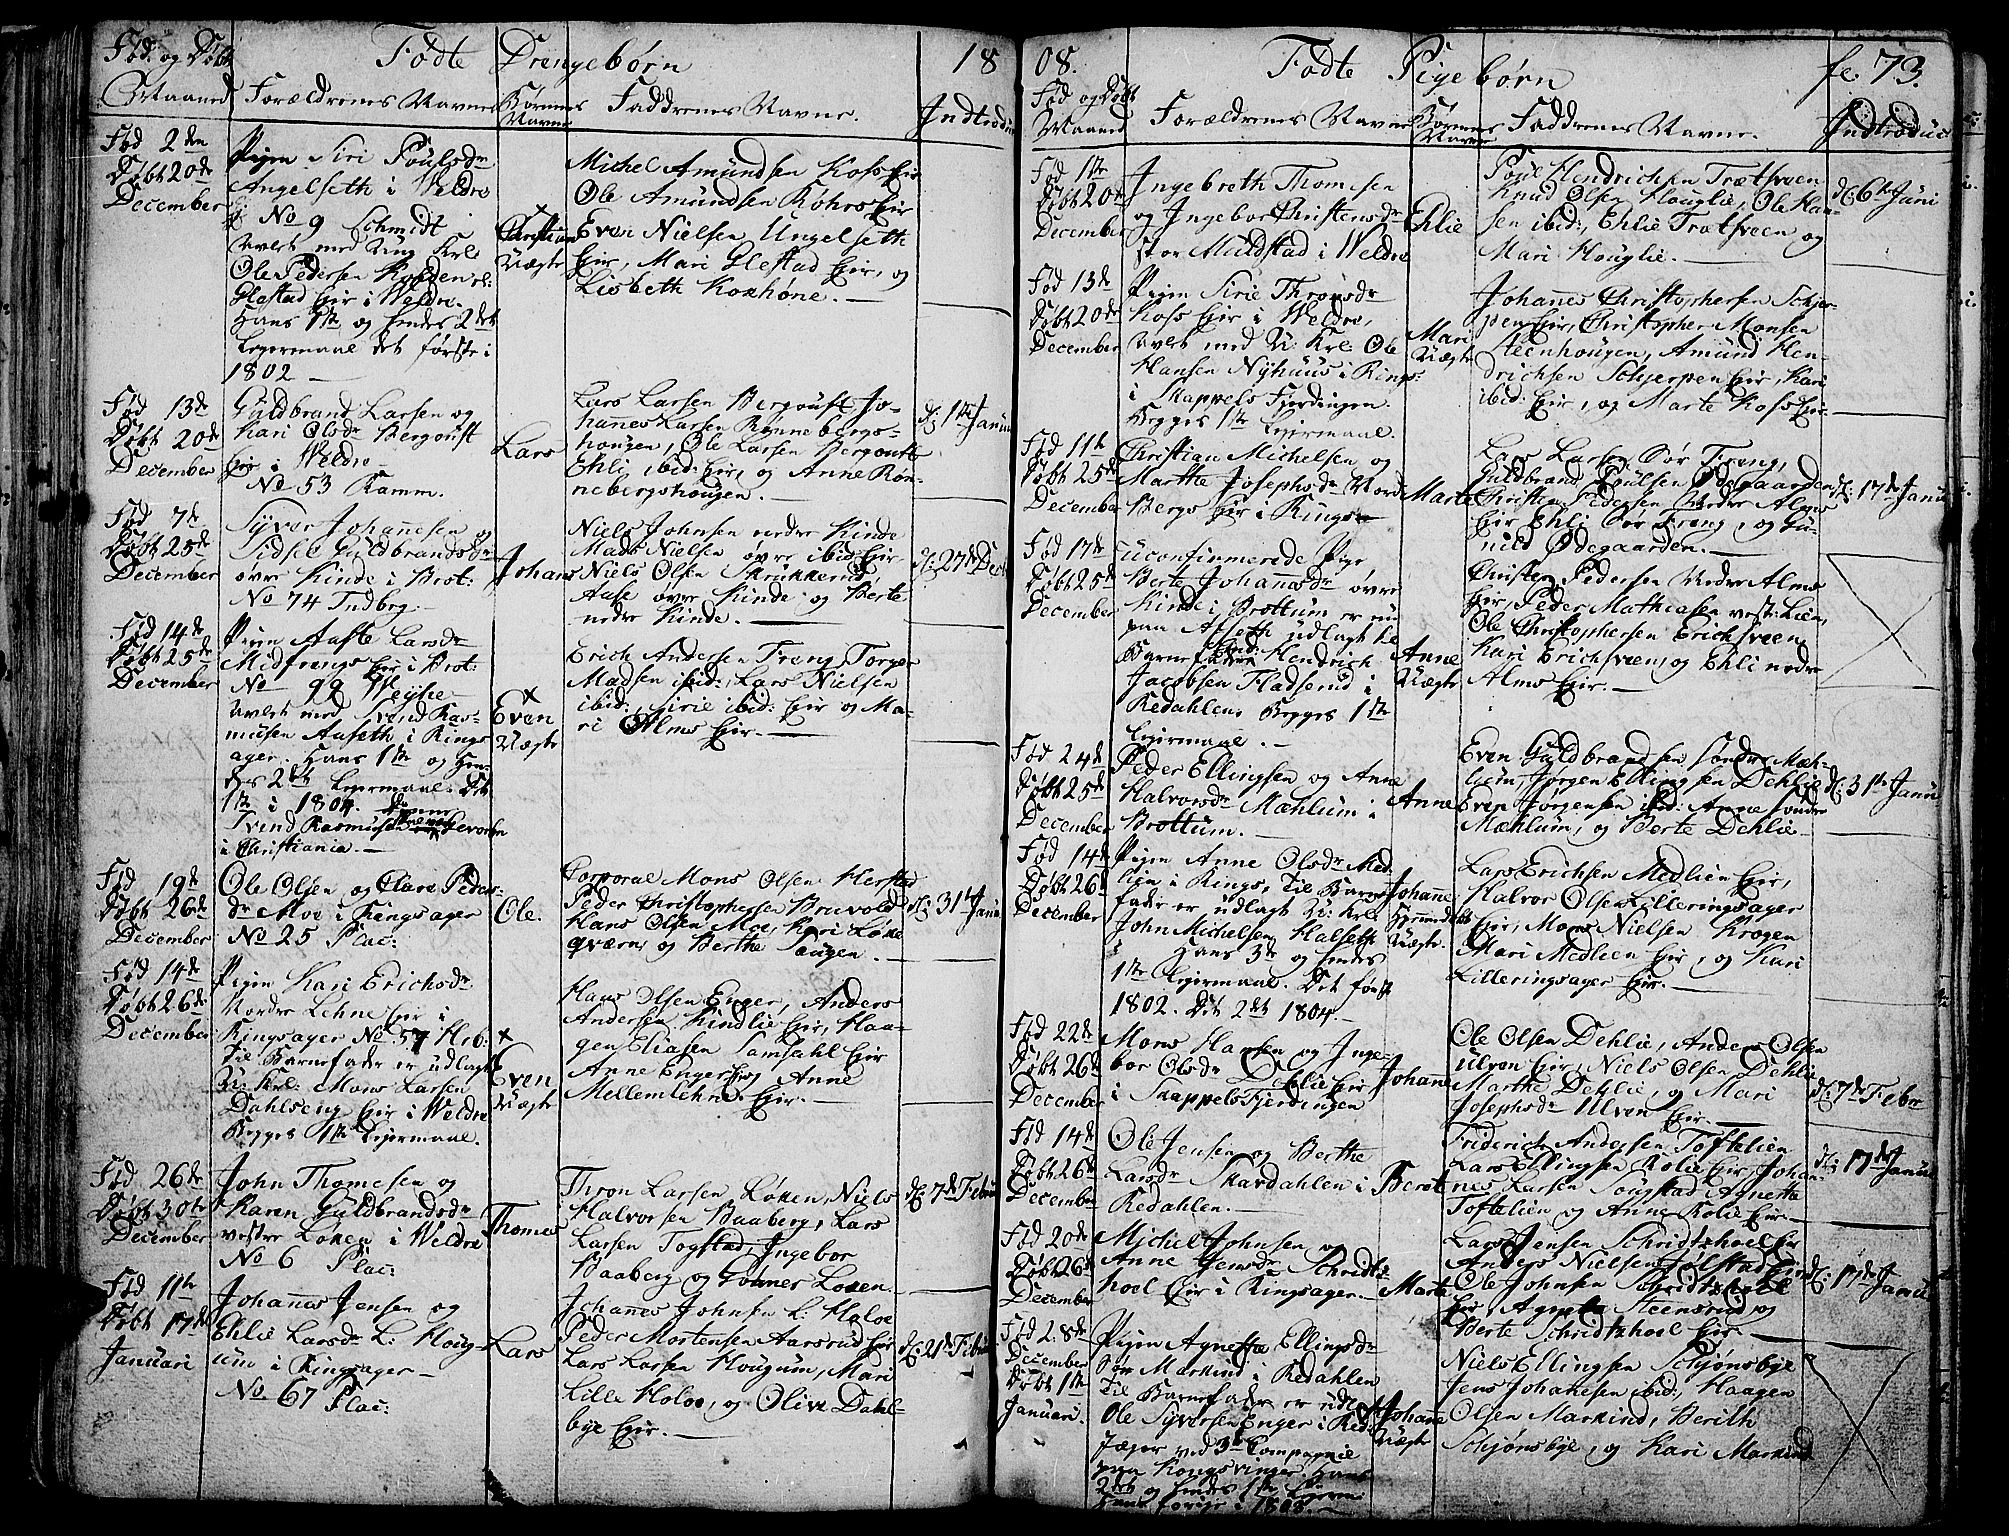 Fød. og Døbt Fødte Drengebørn 18
Maaned Forældrenes Navne Børnenes Navne Faddrenes Navne. Indtroduc
Fød 2den
Døbt 20de
December
Pigen Siri Poulsdr
Angelseth i Weldre
No 9 Schmidt
Avlet med Ung Krl
Ole Pedersen
Glæstad Eir i Weldre.
Hans 1te og hendes 2det
Lejermaal det første i
1802 —
Christian
Uægte
Michel Amundsen Koss Eir
Ole Amundsen Røhrs Eir
Even Nielsen Ungelseth
Eir, Mari Glestad Eir, og
Lisbeth Koxhøne. —
Fød 13de
Døbt 20de
December
Guldbrand Larsen og
Kari Olsdr Bergoust
Eir i Weldre
No 53 Kamm.
Lars
Lars Larsen Bergoust Jo-
hannes Larsen Rønnebergs-
hougen, Ole Larsen Bergoust
Ehli ibid: Eir, og Anne Røn-
nebergshougen. —
d: 17de Januar
Fød 7de
Døbt 25de
December
Syver Johannesen og
Sidsel Guldbrandsdr
øvre Kinde i Brot:
No 74 Indbrg. —
Johans
Niels Johnsen nedre Kinde
Mads Nielsen øvre ibid: Eir
Niels Olsen Skrukkerud
Aase øvre Kinde og Berte
nedre Kinde. —
d: 27de Dec
Fød 14de
Døbt 25de
December
Pigen Aaste Larsdr
Midtrengs Eir i Brot:
No 99
avlet med Svend Ras-
musen Aaseth i Rings
ager. Hans 1te og hen-
des 2det Lejermaal. Det
1te i 1804.
Svend Rasmusen
i Christiania. —
Even
Uægte
Erich Andersen Freng, Torger
Madsen ibid:, Lars Nielsen
ibid:, Sirie ibid: Eir og Ma-
ri Alms Eir. —
Fød 19de
Døbt 26de
December
Ole Olsen og Clare Peders-
dr Moe i Ringsager
No 25 Plac:
Ole.
Corporal Mons Olsen Herstad
Peder Christophersen Bruvold
Hans Olsen Moe, Kari Løke
qværn, og Berthe Hougen. —
d: 31te Janu
Fød 14de
Døbt 26de
December
Pigen Kari Erichsdr
Nordre Lehne Eir i
Ringsager No 57
Til Barnefader er udlagt
U: Krl: Mons Larsen
Dahlseng Eir i Weldre
Begges 1te Lejermaal.
Even
Uægte
Hans Olsen Enger, Anders
Andersen Kindlie Eir, Haa-
gen Eliasen Samdahl Eir
Anne Enger Eir, og Anne
Mellemlehne Eir. —
Fød 26de
Døbt 30te
December
John Thomesen og
Karen Guldbrandsdr
vestre Løken i Weldre
No 6 Plac:
Thomes
Thron Larsen Løken, Niels
Halvorsen Baaberg, Lars
Larsen Togstad, Ingebor
Baaberg og Gønner Løken.
d: 7de Februar
Fød 11te
Døbt 17de
Januari
Johannes Jensen og
Ehlie Larsdr L: Houg-
um i Ringsager —
No 67 Plac:
Lars
Johannes Johnsen L: Holoe
Peder Mortensen Aarsrud Eir
Lars Larsen Hougum, Mari
Lille Holoe, og Olive Dahl-
bye Eir. —
d: 21de Februar
08. Fødte Pigebørn fo. 73.
Fød og Døbt
Maaned Forældrenes Navne Børnenes Navne Faddrenes Navne. Indtroduc
Fød 1te
Døbt 20de
December
Ingebreth Thomesen
og Ingebor Christensdr
Stor Muldstad i Weldre
Ehlie
Poul Hendrichsen Trætsveen
Knud Olsen Houglie, Ole Han-
sen ibid:, Ehlie Trætsveen og
Mari Houglie. —
d: 6te Janu
Fød 13de
Døbt 20de
December
Pigen Sirie Thronsdr
Koss Eir i Weldre,
avlet med U: Krl: Ole
Hansen Nyhuus i Rings:
i Skappels Fjerdingen.
Begges 1te Lejermaal.
Mari
Uægte
Johannes Christophersen Schjer-
pen Eir, Christopher Monsen
Steenhougen, Amund Hen-
drichsen Schjerpen Eir, Kari
ibid: Eir, og Marte Koss Eir.
Fød 11te
Døbt 25de
December
Christian Michelsen og
Marthe Josephsdr Nord
Bergs Eir i Rings —
Marte
Lars Larsen Sør Freng,
Guldbrand Poulsen Ødegaarden
Christen Pedersen Nedre Alms
Eir, Ehli Sør Freng, og Gu-
nild Ødegaarden. —
d: 17de Janu
Fød 17de
Døbt 25de
December
uconfirmerede Pige
Berte Johannesdr øvre
Kinde i Brottum er nu
paa Afseth udlagt til
Barnefader Hendrich
Jacobsen Fladserud i
Redahlen. Begges 1te
Lejermaal. —
Anne
Uægte
Christen Pedersen Nedre Alms
Eir, Peder Mathiasen vest: Lien,
Ole Christophersen Erichsveen
Kari Erichsveen, og Ehli nedre
Alms Eir. —
Fød 24de
Døbt 25de
December
Peder Ellingsen og Anne
Halvorsdr Mæhlum i
Brottum. —
Anne
Even Guldbrandsen søndre Mæh-
lum, Jørgen Ellingsen Dehlie
Even Jørgensen ibid: Anne søndre
Mæhlum, og Berte Dehlie. —
d: 31te Janu
Fød 14de
Døbt 26de
December
Pigen Anne Olsdr Med
lien i Rings, til Barne
fader er udlagt U: Krl:
John Michelsen Halseth
Hans 3de og hendes
1te Lejermaal. Det første
1802. Det 2det 1804. —
Johanne
Uægte.
Lars Erichsen Medlien Eir,
Halvor Olsen Lilleringsager
Eir, Mons Nielsen Krogen
Mari Medlien Eir, og Kari
Lilleringsager Eir. —
Fød 22de
Døbt 26de
December
Mons Hansen og Inge-
bor Olsdr Dehlie Eir
i Skappels Fjerdingen
Johanne
Ole Olsen Dehlie, Anders Olsen
Ulven Eir, Niels Olsen Dehlie
Marthe Dehlie, og Mari
Josephsdr Ulven Eir. —
d: 7de Febr
Fød 14de
Døbt 26de
December
Ole Jensen og Berthe
Larsdr Skardahlen i
Redahlen. —
Beret
Friderich Andersen Toftelien
Lars Ellingsen Kolie Eir, Johan-
nes Larsen Sougstad Agnethe
Toftelien og Anne Kolie Eir. —
d: 17de Janu
Fød 20de
Døbt 26de
December
Michel Johnsen og
Anne Jensdr Schridts-
hoel Eir i Ringsager. —
Marte
Lars Jensen Schridtshoel Eir
Anders Nielsen Gølstad Eir
Ole Johnsen Schridtshoel
Eir, Agnethe Steensrud og
Berte Schridtshoel Eir. —
d: 17de Janu
Fød 28de
December
Døbt 1te
Januari.
Pigen Agnetha Ellingsdr
Sør Markind i Redahlen
Til Barnefader er udl:
Ole Syversen Enger i Red:
Jæger ved 3de Compagnie
paa Kongsvinger. Hans
2det og hendes 1te Lejerm
Hans forrige i 1808. —
Johanne
Uægte
Niels Ellingsen Schjønsbye
Jens Johannesen ibid:, Haagen
Olsen Markind, Berith
Schjønsbye, og Kari Markind